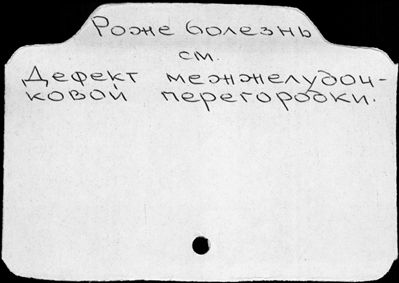 Роже болезнь
см.
Дефект межжелудоч-
ковой перегородки.